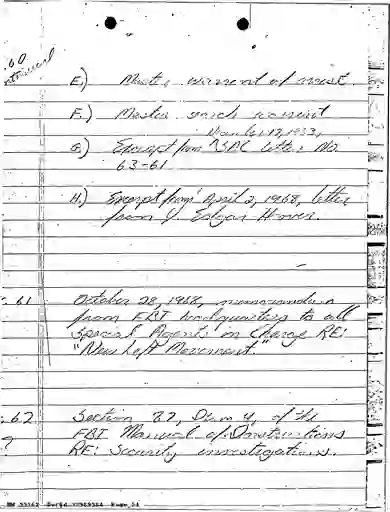 E.) Master warrant of arrest
F.) Master search warrant
G.) Excerpt from SAC letter No.
63-61
H.) Excerpt from April 2, 1968, letter
from J. Edgar Hoover
61 October 28, 1968, memorandum
from FBI headquarters to all
Special Agents in Charge RE:
"New Left Movement."
62 Section 87, Item 4, of the
? FBI Manual of Instructions
RE: Security investigations.